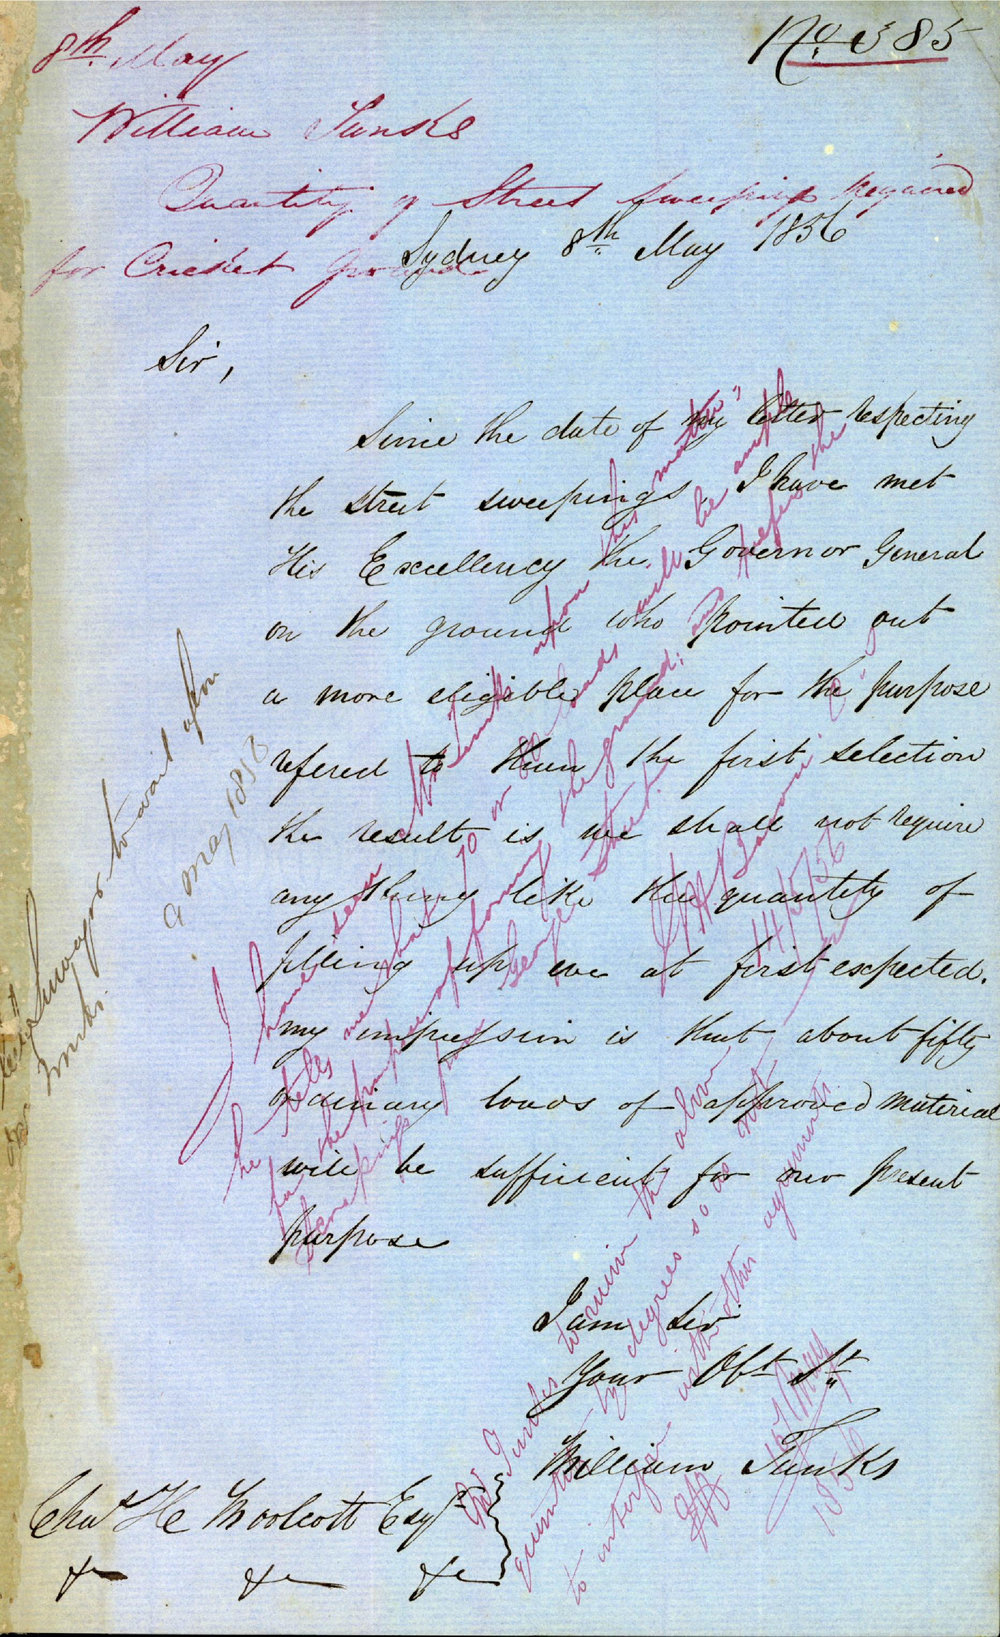 No. 385
8th. May
William Tunks
Quantity of Street Sweepings Required
for Cricket Ground
Sydney 8th May 1856
Sir,
Since the date of my letter respecting
the street sweepings I have met
His Excellency the Governor General
on the ground who pointed out
a more eligible place for the purpose
refered to then the first selection
the result is we shall not require
any thing like the quantity of
filling up we at first expected.
my impression is that about fifty
ordinary loads of approved material
will be sufficient for our present
purpose
I am Sir
Your Obt St
William Tunks
Chas H Woolcott Esqr
&c &c &c
City Surveyor to wait upon
Mr Tunks.
9 May 1856
I have seen Mr Tunks upon this matter,
he tells me that 70 or 80 loads will be ample
for the purpose of forming the ground; and the
scrapings from George Street.
14/5/56
Mr Tunks to receive the above
quantity by degrees so as not
to interfere with other agreements
May
1856